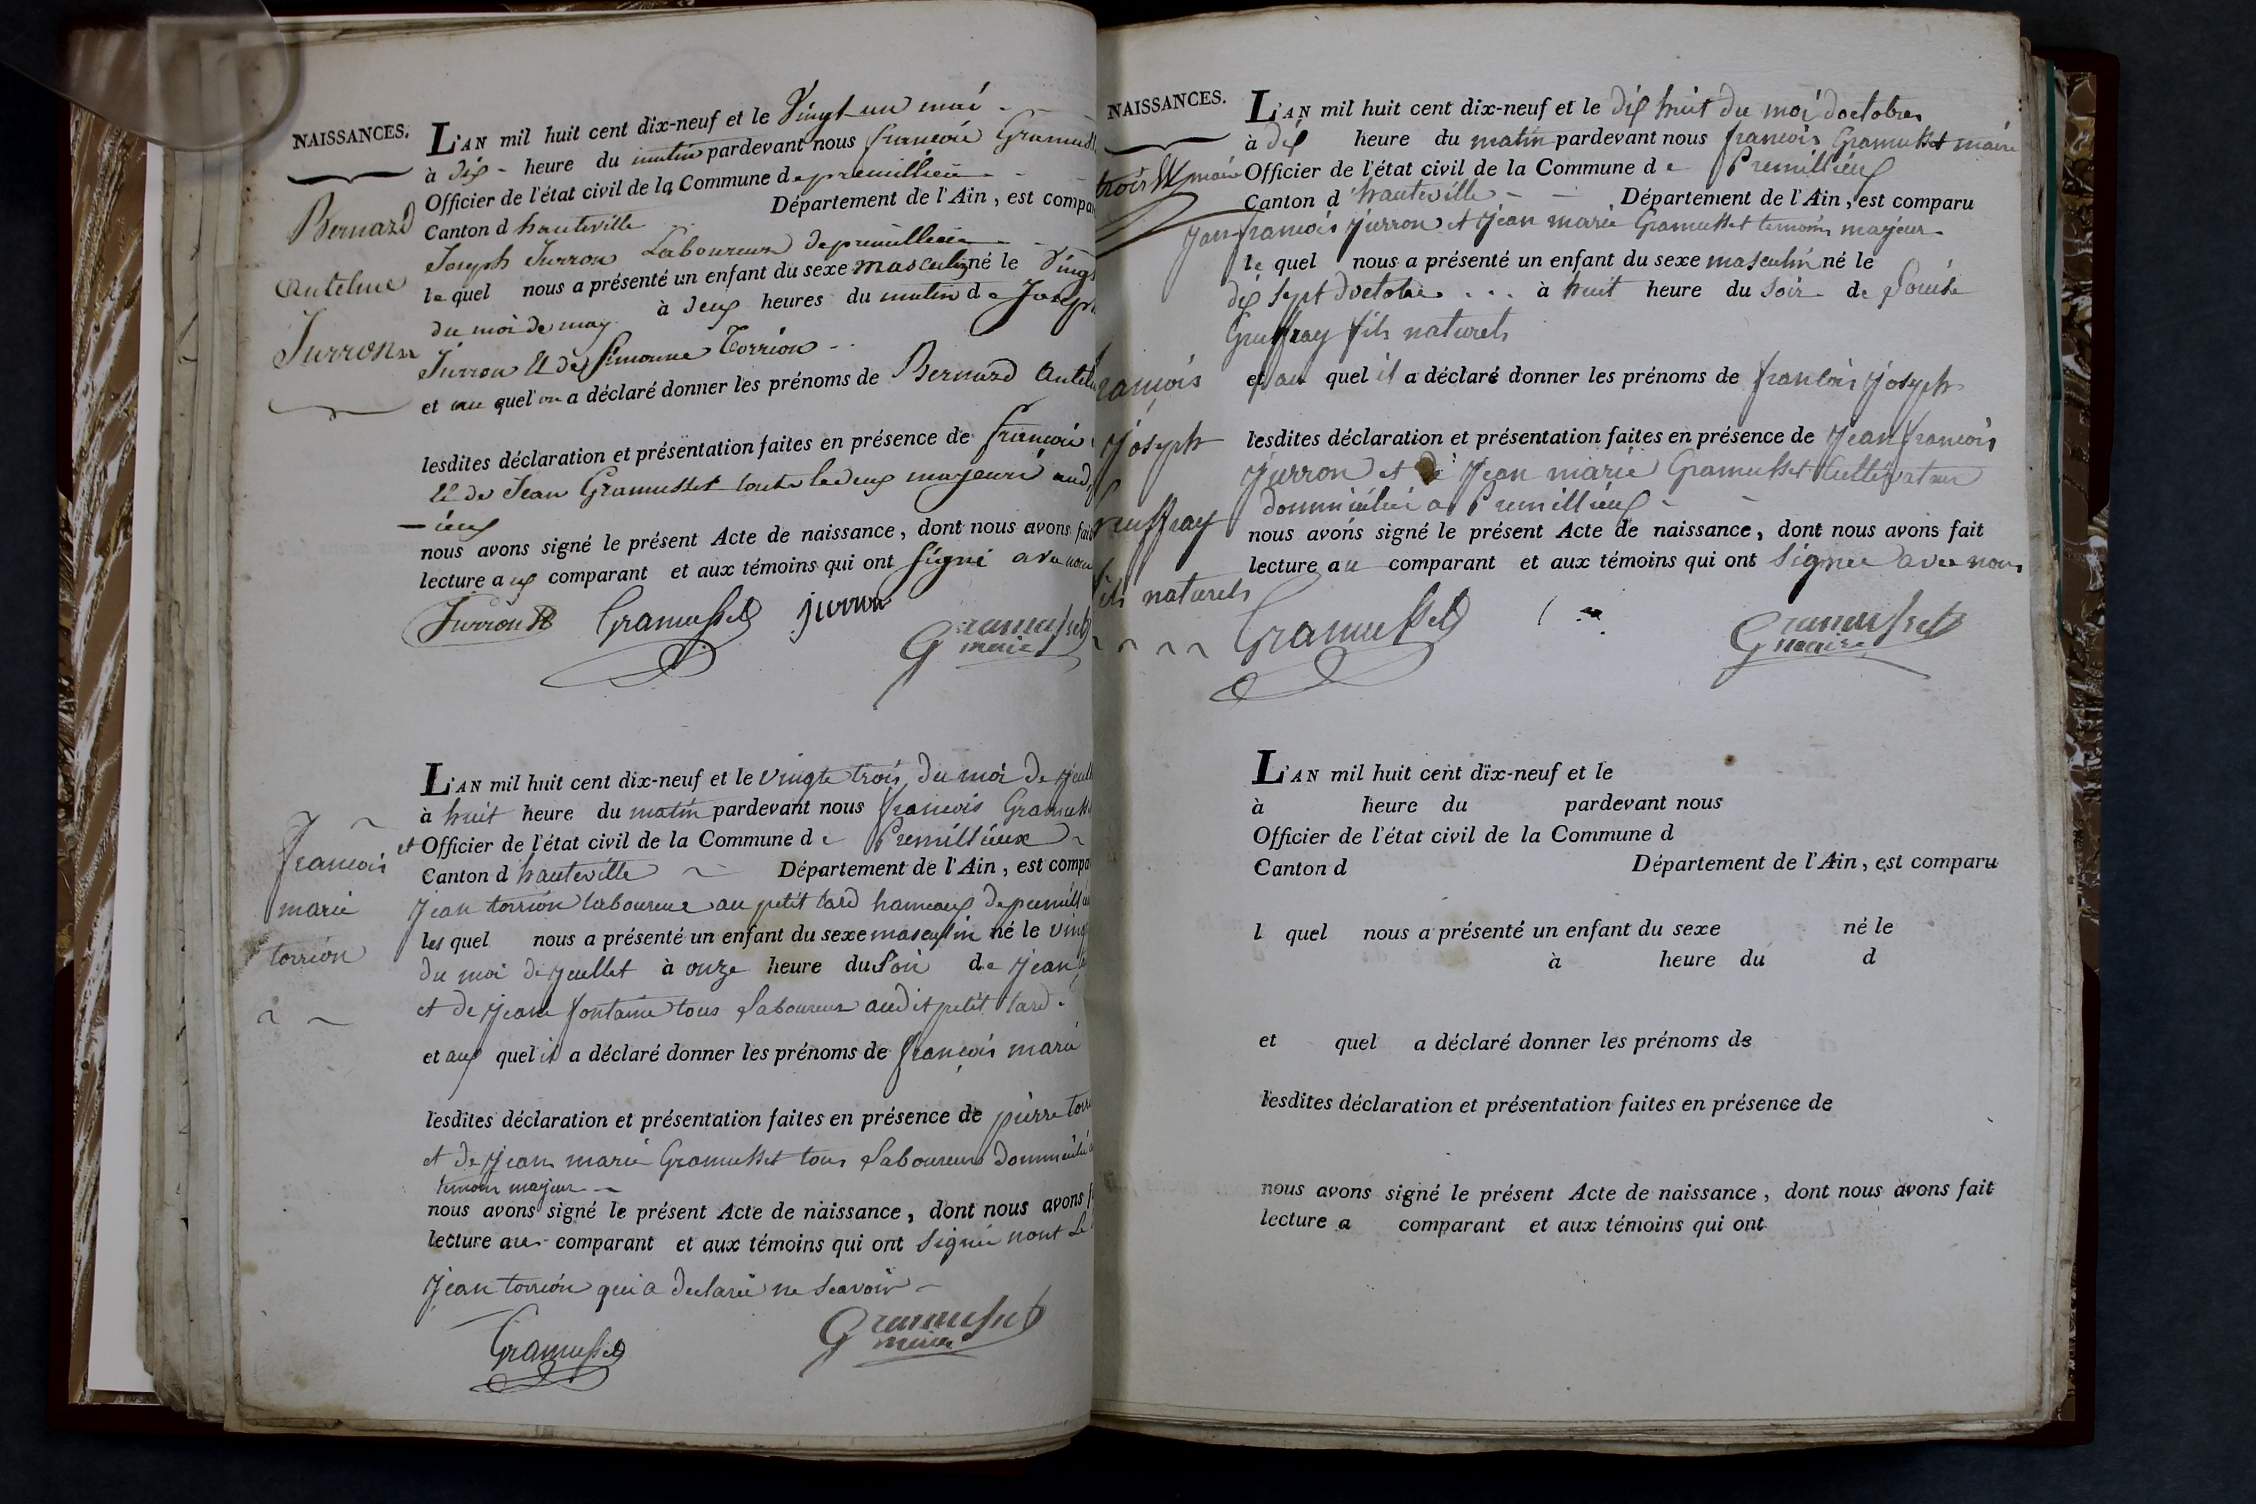 NAISSANCES.
Bernard
Antelme
Jurron
L'AN mil huit cent dix-neuf et le Vingt un mai
à dix heure du matin pardevant nous francois Gramusset
Officier de l'état civil de la Commune de premillieu
Canton d hauteville Département de l'Ain, est compa
Joseph Jurron Laboureur de premillieu
le quel nous a présenté un enfant du sexe masculin né le Vingt
du moi de may à deux heures du matin de Joseph
Jurron et de Simonne Torrion
et au quel on a déclaré donner les prénoms de Bernard Antel
lesdites déclaration et présentation faites en présence de francois
et de Jean Gramusset toute le deux majeurs aud
ieux
nous avons signé le présent Acte de naissance, dont nous avons fait
lecture aux comparant et aux témoins qui ont signé avec nous
Jurron Gramusset jurron
Gramusset
maire
francois
marie
torrion
L'AN mil huit cent dix-neuf et le vingte trois du moi de juill
à huit heure du matin pardevant nous francois Gramuss
et Officier de l'état civil de la Commune de Premillieux
Canton d hauteville Département de l'Ain, est compa
Jean torrion laboureur au petit tard hameaux de premill
les quel nous a présenté un enfant du sexe masculin né le ving
du moi de juellet à onze heure du soir de Jean
et de jeane fontaine tous laboureur audit petit tard
et aux quel il a déclaré donner les prénoms de françois marie
lesdites déclaration et présentation faites en présence de pierre torr
et de jean marie Gramusset tous laboureurs dommicilié
temoin majeur
nous avons signé le présent Acte de naissance, dont nous avons f
lecture aux comparant et aux témoins qui ont signée nont le
jean torrion qui a declarée ne scavoir
Gramusset Gramusset
maire
NAISSANCES.
trois maire
rancois
joseph
reuffray
fils naturels
L'AN mil huit cent dix-neuf et le dix huit du moi doctobre
à dix heure du matin pardevant nous francois Gramusset maire
Officier de l'état civil de la Commune de Premillieux
Canton d hauteville Département de l'Ain, est comparu
jean francois jurron et jean marie Gramusset temoins majeur
le quel nous a présenté un enfant du sexe masculin né le
dix sept doctobre à huit heure du soir de Louise
Greuffray fils naturels
et au quel il a déclaré donner les prénoms de francois joseph
lesdites déclaration et présentation faites en présence de jean francois
jurron et de jean marie Gramusset cultivateur
dommicilié a Premillieux
nous avons signé le présent Acte de naissance, dont nous avons fait
lecture au comparant et aux témoins qui ont signée avec nous
Gramusset Gramusset
maire
L'AN mil huit cent dix-neuf et le
à heure du pardevant nous
Officier de l'état civil de la Commune d
Canton d Département de l'Ain, est comparu
l quel nous a présenté un enfant du sexe né le
à heure du d
et quel a déclaré donner les prénoms de
lesdites déclaration et présentation faites en présence de
nous avons signé le présent Acte de naissance, dont nous avons fait
lecture a comparant et aux témoins qui ont